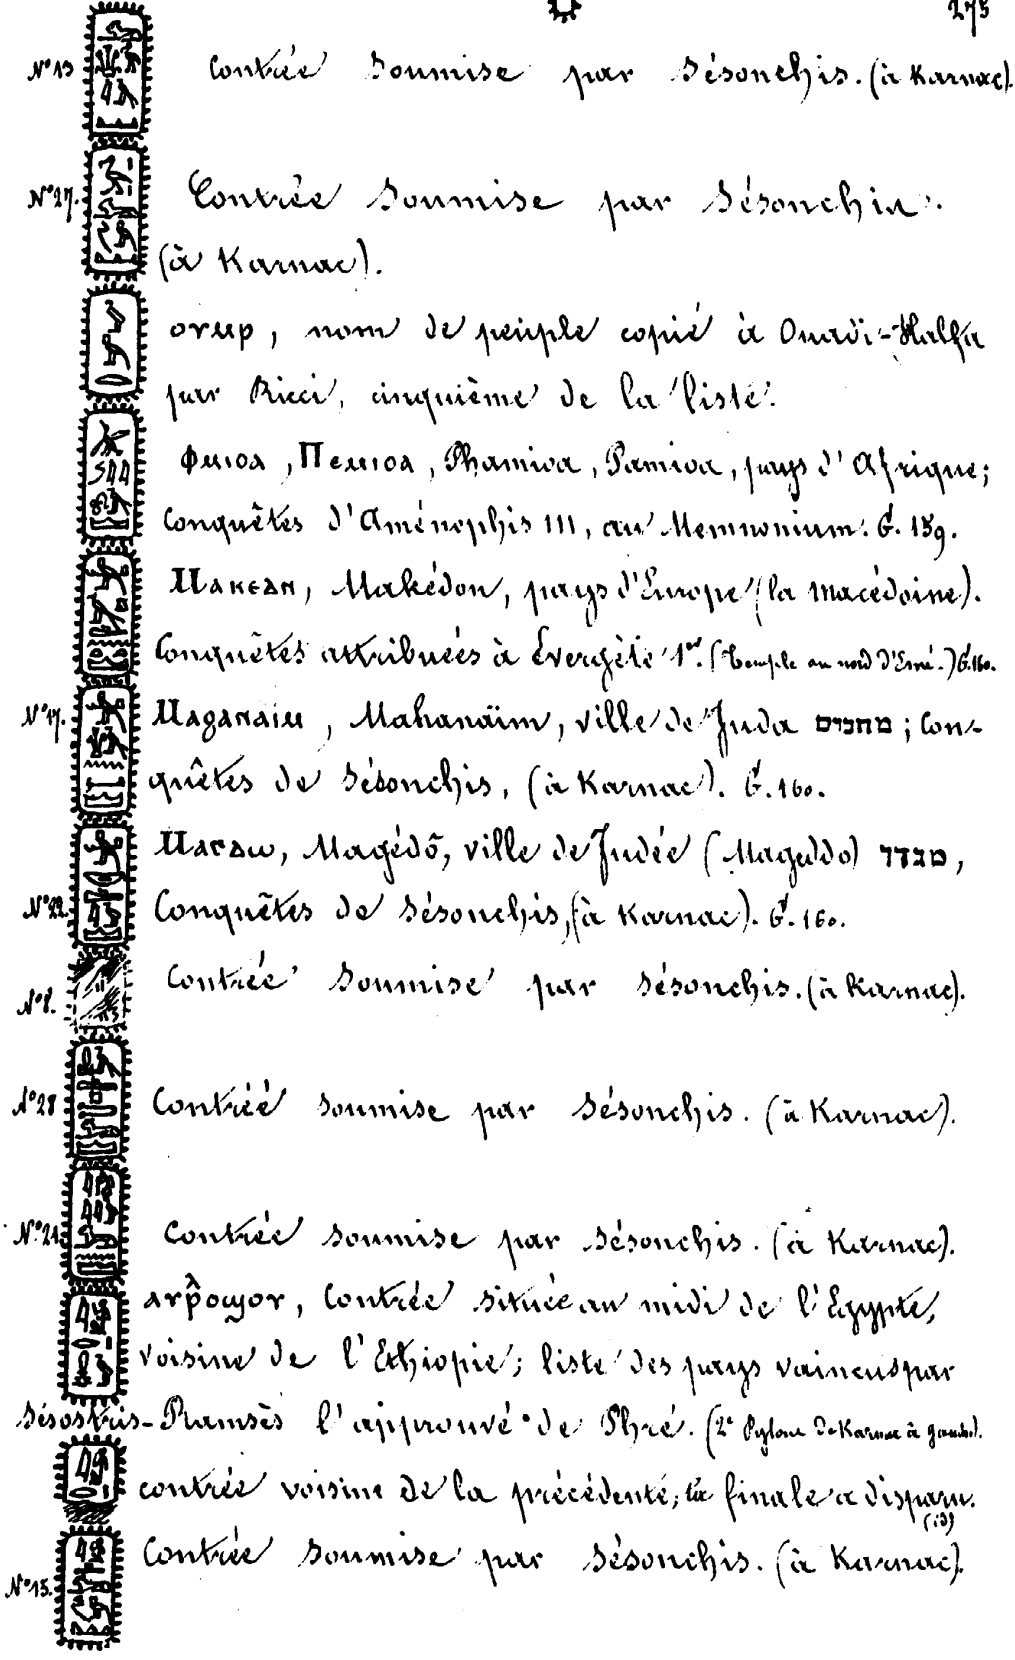 275
N° 13 Contrée Soumise par Sésonchis. (à Karnac).
N° 27. Contrée Soumise par Sésonchis.
(à Karnac).
ⲟⲩⲙⲣ, nom de peuple copié à Ouadi-Halfa
par Ricci, cinquième de la liste.
Ⲫⲙⲓⲟⲁ, Ⲡⲉⲙⲓⲟⲁ, Phamioa, Pamioa, pays d'Afrique;
Conquêtes d'Aménophis III, au Memnonium. G. 159.
Ⲙⲁⲕⲉⲇⲛ, Makédon, pays d'Europe (la Macédoine).
Conquêtes attribuées à Évergète 1er. (Temple au nord d'Esné.) G. 160.
N° 17. Ⲙⲁϩⲁⲛⲁⲓⲙ, Mahanaïm, ville de Juda מחנים; Con-
quêtes de Sésonchis, (à Karnac). G. 160.
Ⲙⲁⲅⲇⲱ, Magédô, ville de Judée (Mageddo) מגדד,
N° 22. Conquêtes de Sésonchis, (à Karnac). G. 160.
N° 8. Contrée Soumise par Sésonchis. (à Karnac).
N° 28 Contrée soumise par Sésonchis. (à Karnac).
N° 21. Contrée soumise par Sésonchis. (à Karnac).
ⲁⲣⲣⲟϣⲟⲩ, Contrée située au midi de l'Egypte,
voisine de l'Ethiopie; liste des pays vaincus par
Sésostris-Ramsès l'approuvé de Phré. (2e Pylone de Karnac à gauche).
contrée voisine de la précédente; la finale a disparu.
(id)
N° 15. Contrée soumise par Sésonchis. (à Karnac).